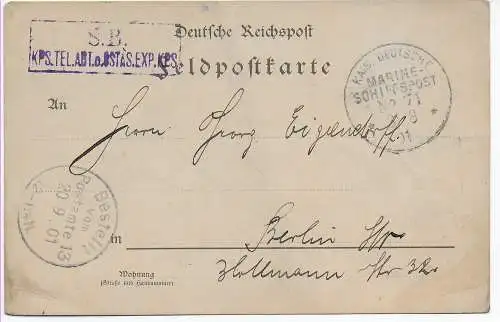 S.B.
KPS.TEL.ABT.o.OSTAS.EXP.KPS
Deutsche Reichspost
Feldpostkarte
KAIS. DEUTSCHE
MARINE-
SCHIFFSPOST
No 71
8
01
An
Herrn Georg Eigendorff.
Bestellt
vom
Postamte 13
20 9. 01
in
Berlin
Wohnung
(Straße und Hausnummer)
Hollmann Str 32